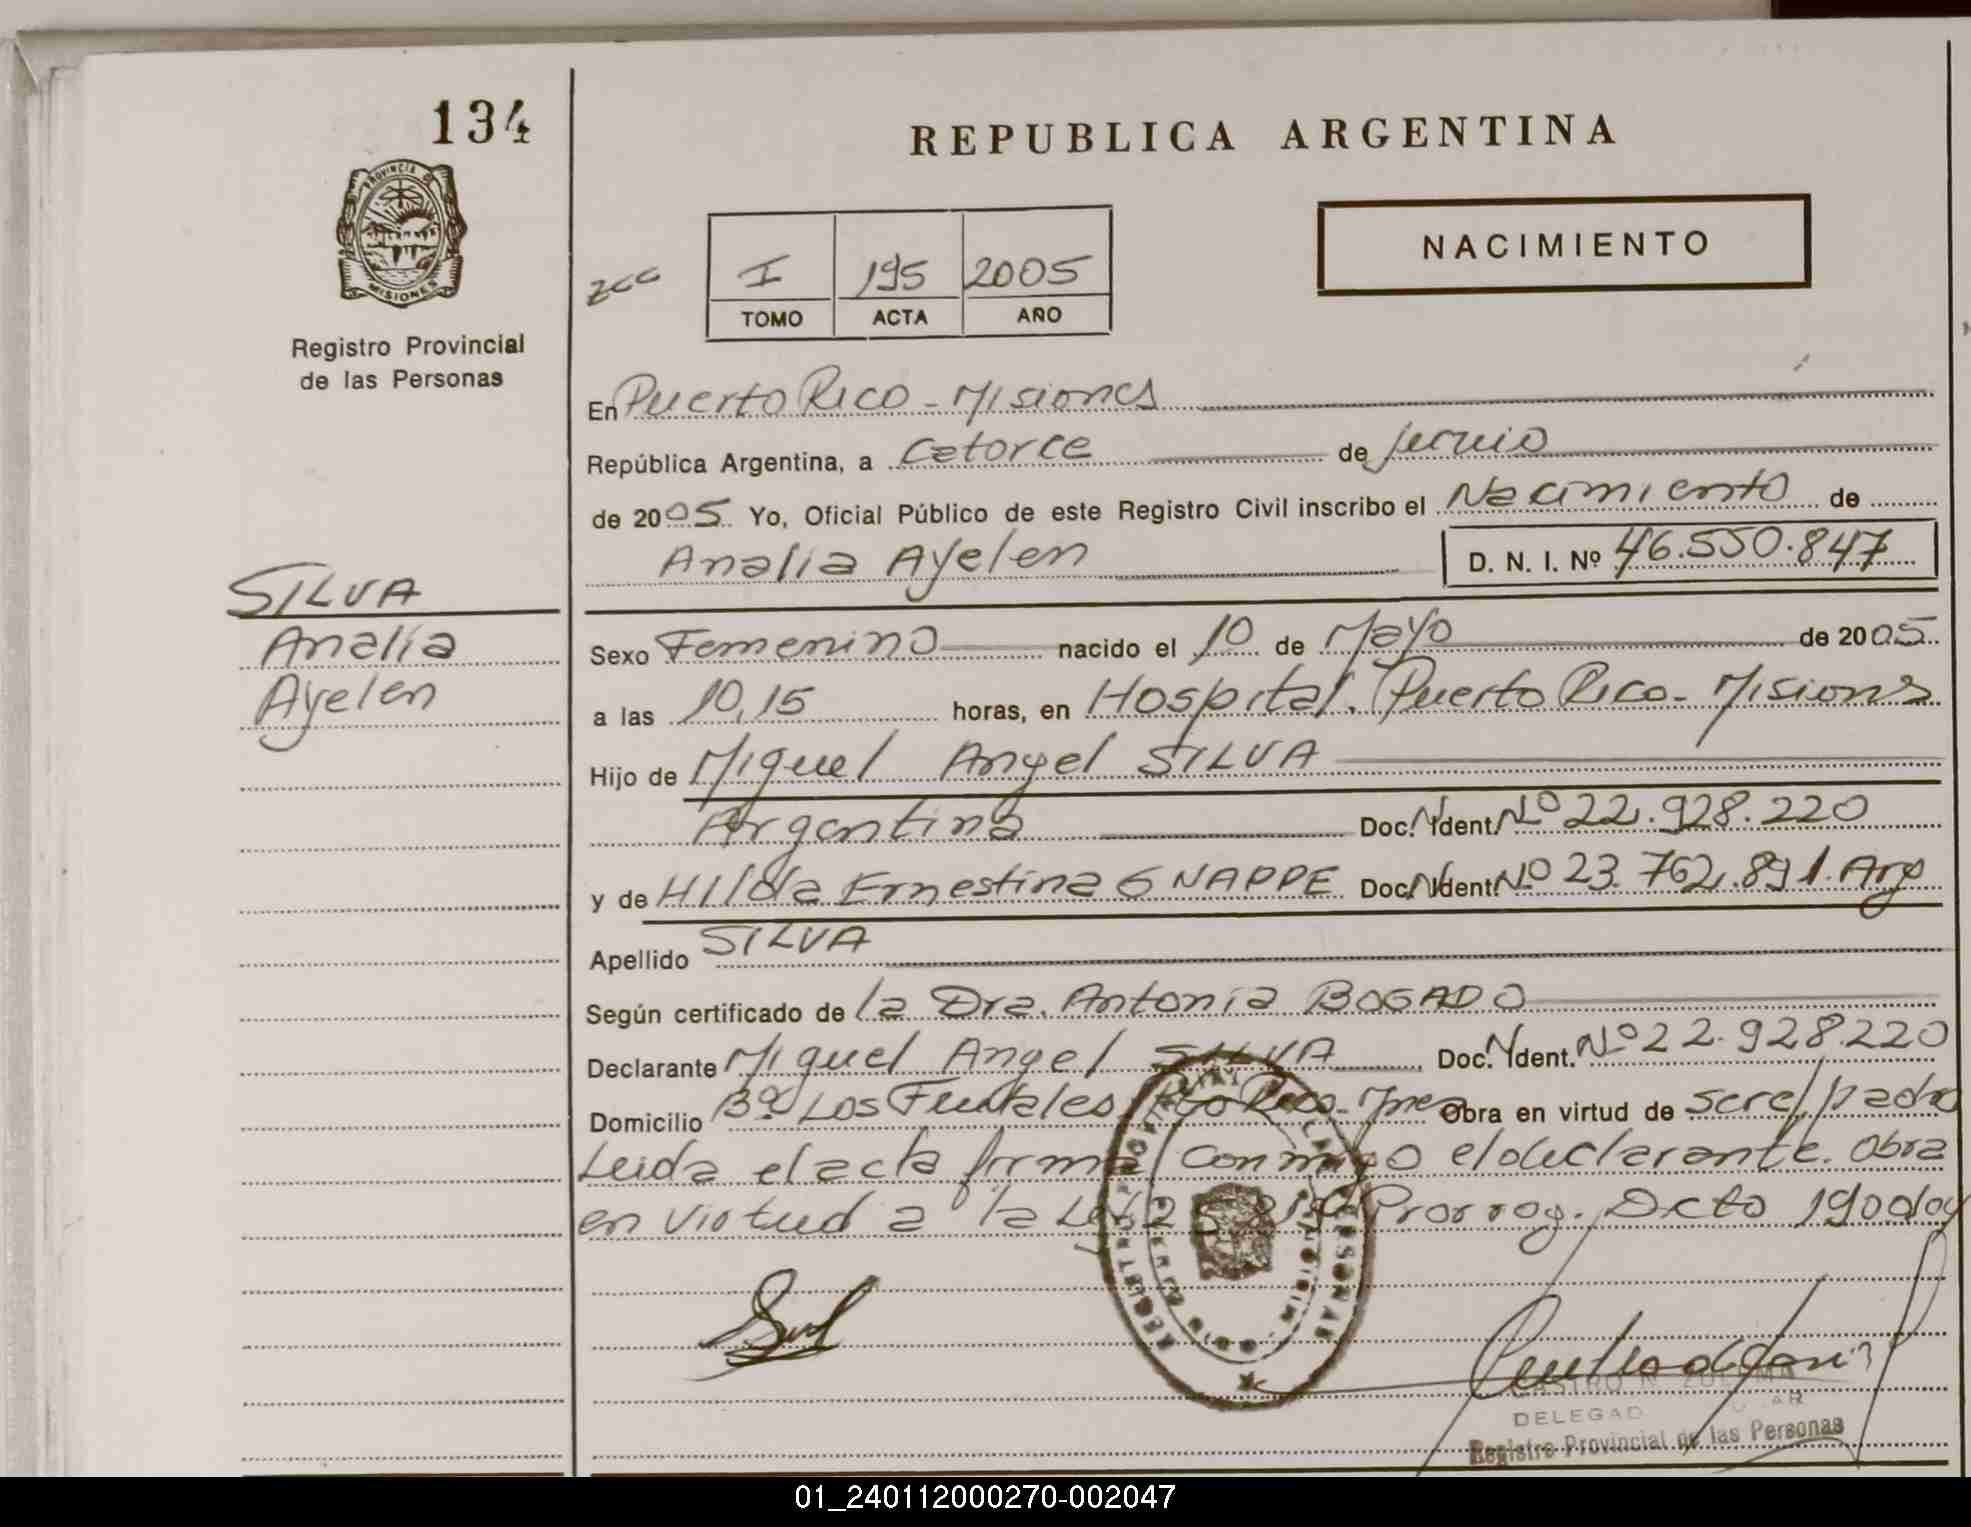 134
REPUBLICA ARGENTINA
PROVINCIA DE
MISIONES
NACIMIENTO
I 195 2005
TOMO ACTA AÑO
Registro Provincial
de las Personas
En Puerto Rico - Misiones
República Argentina, a catorce de junio
de 2005 Yo, Oficial Público de este Registro Civil inscribo el Nacimiento de
Analia Ayelen D. N. I. Nº 46.550.847
SILVA
Analia
Ayelen
Sexo Femenino nacido el 10 de Mayo de 2005
a las 10,15 horas, en Hospital. Puerto Rico - Misiones
Hijo de Miguel Angel SILVA
Argentina Doc. Ident. Nº 22.928.220
y de Hilda Ernestina GNAPPE Doc. Ident. Nº 23.762.891. Arg
Apellido SILVA
Según certificado de la Dra. Antonia BOGADO
Declarante Miguel Angel SILVA Doc. Ident. Nº 22.928.220
Domicilio Bº Los Pto Rico - Mnes Obra en virtud de ser el padre
Leida el acta firma conmigo el declarante. Obra
en virtud a la Ley Prorrog. Dcto
CASTRO N. ZULEMA
DELEGAD
Registro Provincial de las Personas
01_240112000270-002047